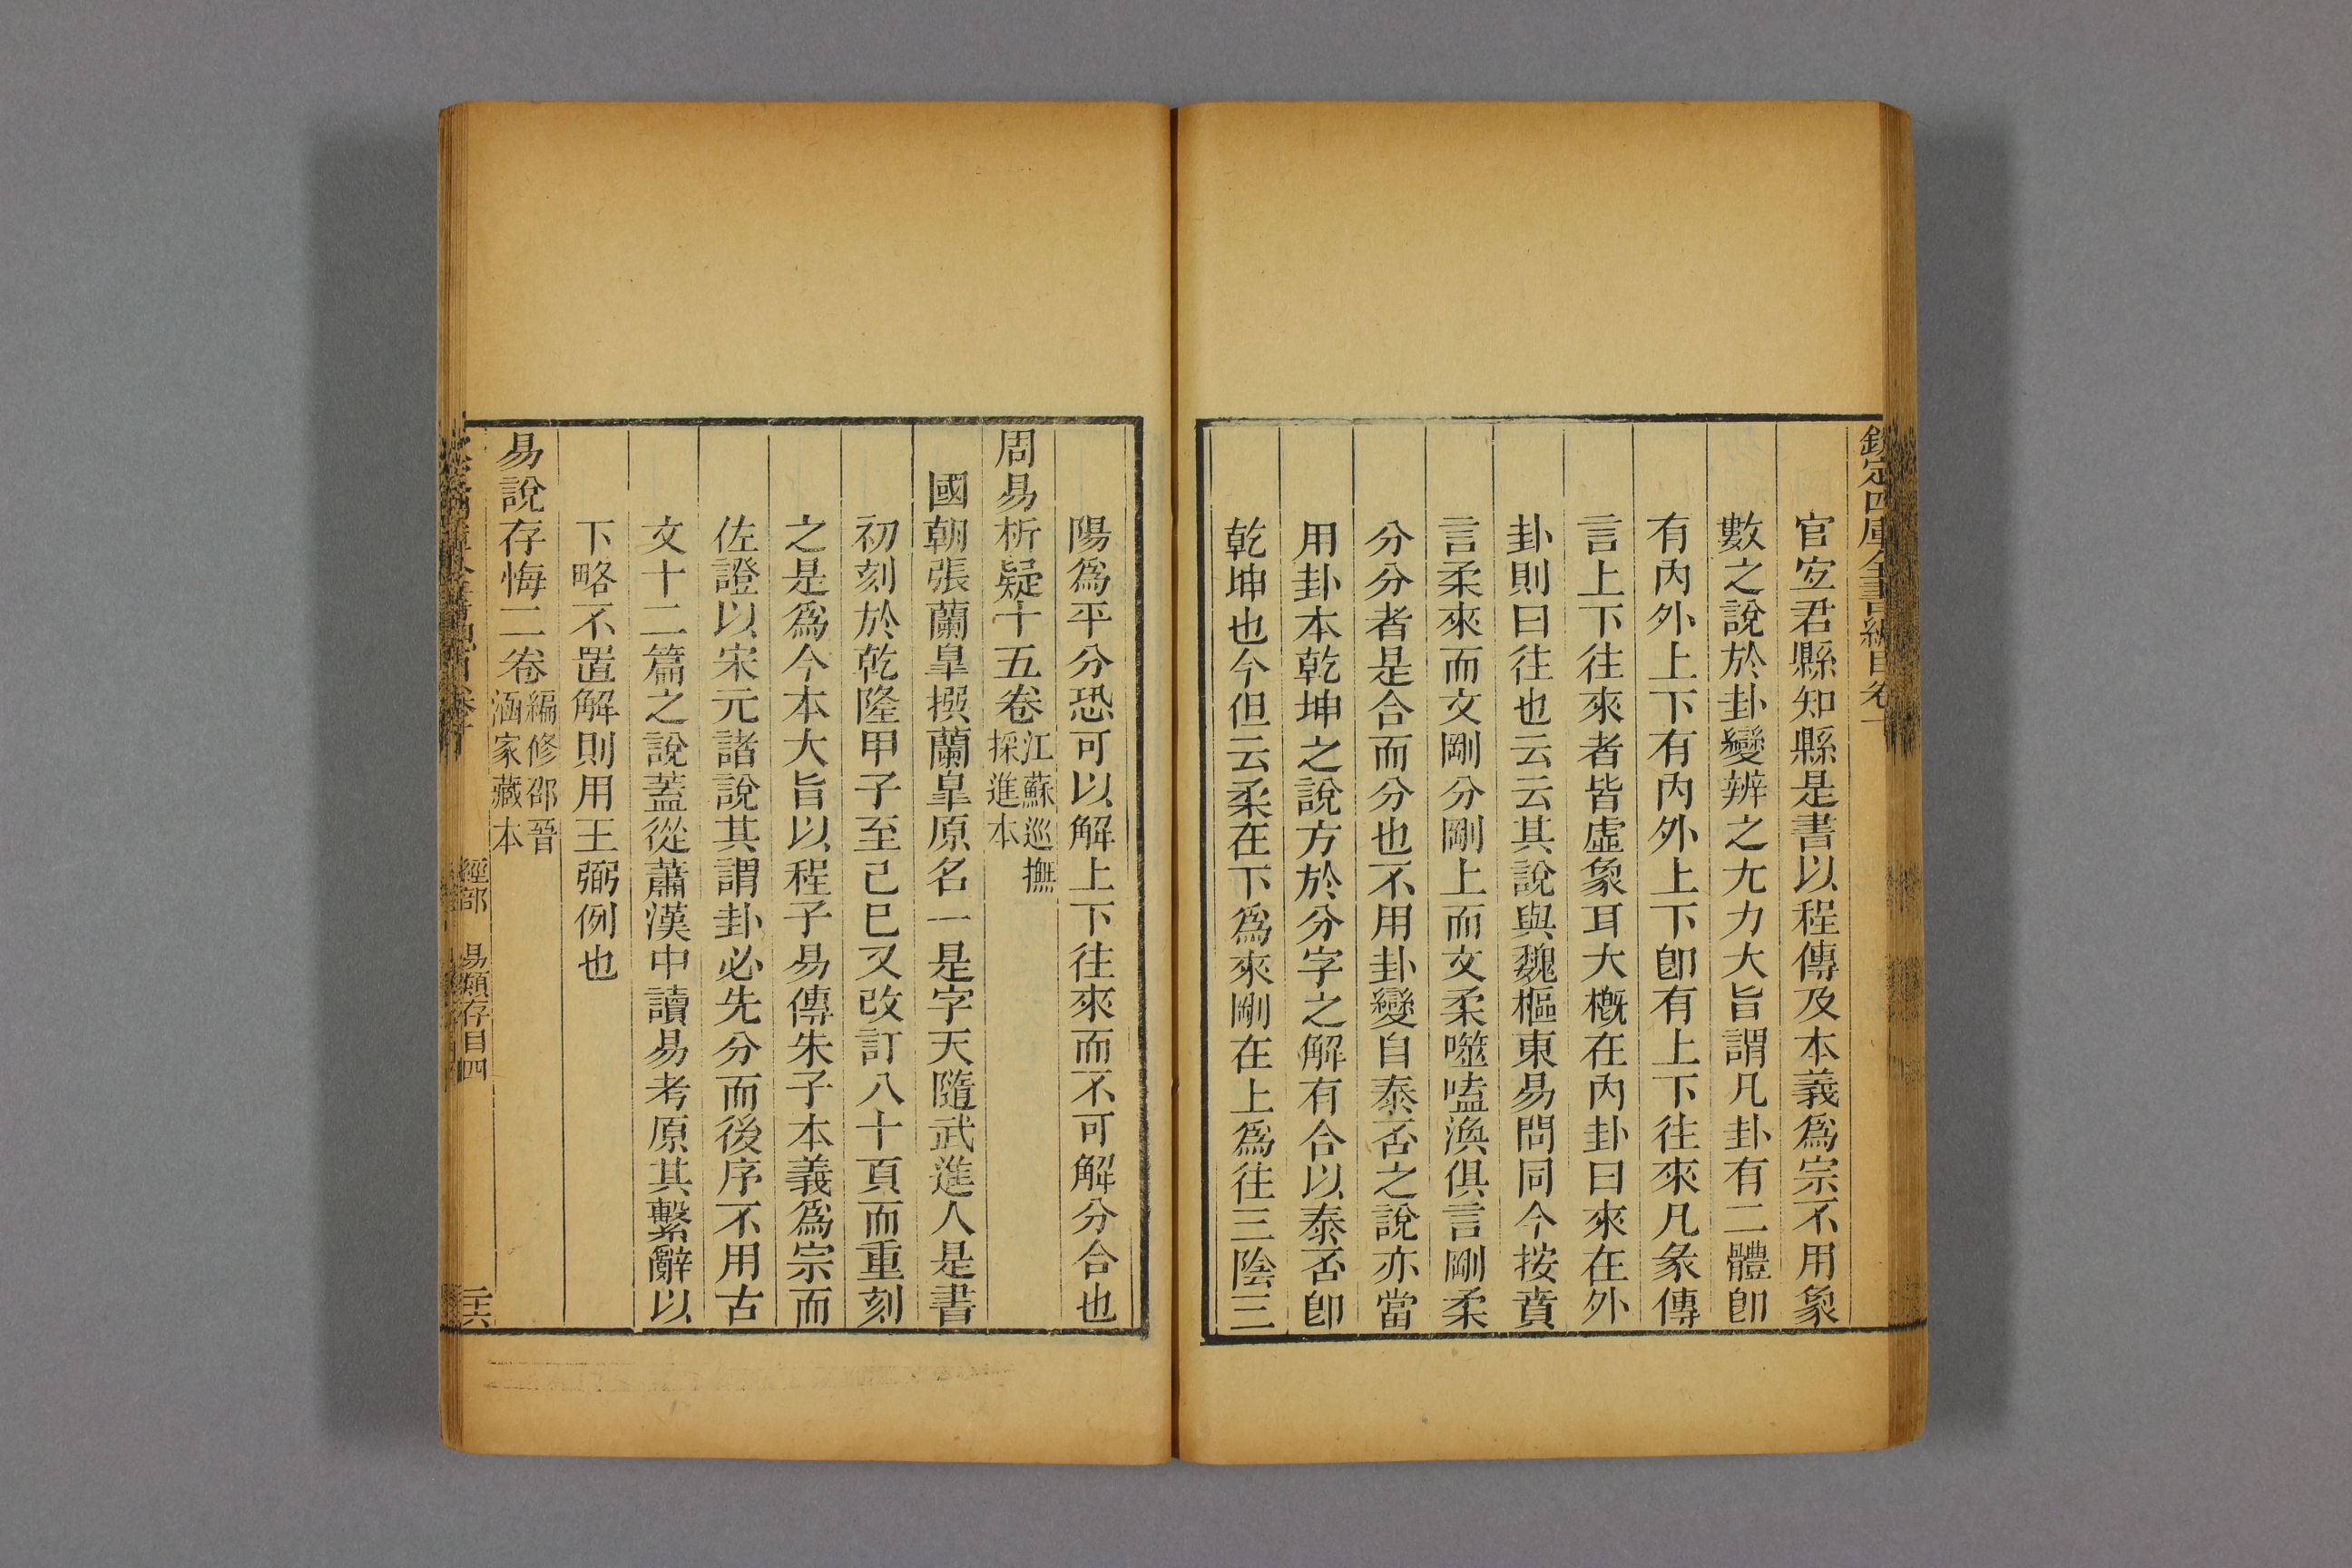 官定君縣知縣是書以程傳及本義爲宗不用象
數之說於卦變辨之尤力大旨謂凡卦有二體卽
有內外上下有內外上下卽有上下往來凡彖傳
言上下往來者皆虛象耳大槪在內卦曰來在外
卦則曰往也云云其說與魏樞東易問同今按賁
言柔來而文剛分剛上而文柔噬嗑渙俱言剛柔
分分者是合而分也不用卦變自泰否之說亦當
用卦本乾坤之說方於分字之解有合以泰否卽
乾坤也今但云柔在下爲來剛在上爲往三陰三
陽爲平分恐可以解上下往來而不可解分合也
周易析疑十五卷江蘇巡撫
採進本
國朝張蘭皐撰蘭皐原名一是字天隨武進人是書
初刻於乾隆甲子至己巳又改訂八十頁而重刻
之是爲今本大旨以程子易傳朱子本義爲宗而
佐證以宋元諸說其謂卦必先分而後序不用古
文十二篇之說蓋從蕭漢中讀易考原其繫辭以
下略不置解則用王弼例也
易說存悔二卷編修邵晉
涵家藏本
經部 易類存目四